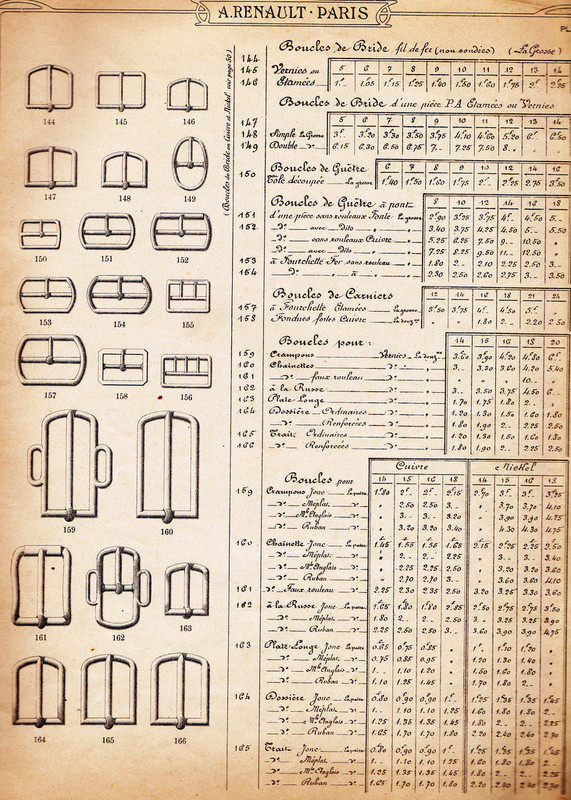 A. RENAULT · PARIS
PL
Boucles de Bride fil de fer (non soudées) (La Grosse)
144
145 Vernies ou
146 Étamées
5 6 7 8 9 10 11 12 13 14
Boucles de Bride d'une pièce P.A Étamées ou Vernies
5 6 7 8 9 10 11 12 13 14
147
148 Simple La Grosse 3.. 3.20 3.30 3.50 3.75 4.10 4.60 5.20 6.. 6.50
149 Double d° 6.15 6.30 6.50 6.75 7.. 7.25 7.50 8..
(Boucles de Bride en Cuivre et Nickel voir page 50)
Boucles de Guêtre
150 Tôle découpée La grosse
6 7 8 9 10 12 14 16
1.40 1.50 1.60 1.75 2.. 2.25 2.75 3.50
Boucles de Guêtre à pont
8 10 12 14 16 18
151 d'une pièce sans rouleaux Fonte La grosse 2.90 3.25 3.75 4.. 4.50 5..
152 d° avec dito 3.40 3.75 4.25 4.50 5.. 5.50
d° sans rouleaux Cuivre 5.25 6.25 7.50 9.. 10.50
d° avec dito 7.25 8.25 9.50 11.. 12.50
153 à Fourchette Fer sans rouleau 1.80 2.. 2.10 2.25 2.50 3..
154 d° à d° 2.30 2.50 2.60 2.75 3.. 3.50
Boucles de Carniers
12 14 16 18 21 24
157 à Fourchette Étamées La grosse 3.50 3.75 4.. 4.50 5..
158 Fondues fortes Cuivre La douz. 1.80 2.. 2.20 2.50
Boucles pour:
14 15 16 18 20
159 Crampons Vernies La douz. 3.60 3.90 4.20 4.80 6..
160 Chainettes d° 3.. 3.20 3.60 4.20 5.40
161 d° faux rouleau d° 10..
162 à la Russe d° 3.. 3.50 3.75 4.50 6..
163 Plate Longe d° 1.70 1.75 1.80 2..
164 Dossière Ordinaires d° 1.20 1.30 1.50 1.60 1.80
d° Renforcées d° 1.80 1.90 2.. 2.25 2.50
165 Trait Ordinaires d° 1.20 1.30 1.50 1.60 1.80
166 d° Renforcées d° 1.80 1.90 2.. 2.25 2.50
Boucles pour
Cuivre Nickel
14 15 16 18 14 15 16 18
159 Crampons Jonc La paire
d° Méplat d° 2.50 2.50 3.. 3.70 3.70 4.10
d° Mt. Anglais d° 3.. 3.. 3.20 3.90 3.90 4.25
d° Ruban d° 3.20 3.20 3.40 4.30 4.30 4.75
160 Chainette Jonc La paire 1.45 1.55 1.55 1.65 2.15 2.25 2.25 2.50
d° Méplat d° 2.. 2.. 2.25
d° Mt. Anglais d° 2.25 2.25 2.50 3.20 3.20 3.60
d° Ruban d° 2.70 2.70 3.. 3.60 3.60 4.10
161 d° Faux rouleau d° 2.25 2.30 2.30 2.50 3.20 3.25 3.30 3.60
162 à la Russe Jonc d°
d° Méplat d° 1.80 2.. 2.. 2.50
d° Ruban d° 2.25 2.50 2.50 3.. 3.60 3.90 3.90 4.75
163 Plate Longe Jonc La paire 0.65 0.75 0.85 1.. 1.10 1.20
d° Méplat d° 0.75 0.85 0.95 1.20 1.30 1.40
d° Mt. Anglais d° 1.. 1.10 1.20 1.50 1.60 1.80
d° Ruban d° 1.10 1.25 1.45 1.70 1.80 2..
164 Dossière Jonc La paire 0.80 0.90 0.90 1.. 1.25 1.35 1.35 1.45
d° Méplat d° 1.. 1.10 1.10 1.25 1.60 1.80 1.80 2..
d° Mt. Anglais d° 1.25 1.35 1.35 1.45 1.80 2.. 2.. 2.25
d° Ruban d° 1.65 1.70 1.70 1.80 2.20 2.40 2.40
165 Trait Jonc La paire 0.80 0.90 0.90 1..
d° Méplat d° 1.. 1.10 1.10 1.25 1.60 1.80 1.80 2..
d° Mt. Anglais d° 1.25 1.35 1.35 1.45 1.80 2.. 2.. 2.25
d° Ruban d° 1.65 1.70 1.70 1.80
144 145 146
147 148 149
150 151 152
153 154 155
157 158 156
159 160
161 162 163
164 165 166